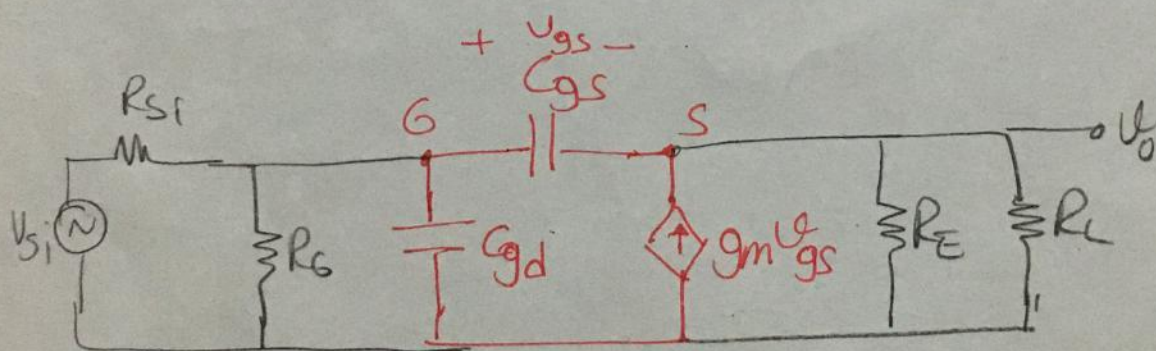 + Vgs -
Cgs
RSi
G
S
Vo
VSi
RG
Cgd
gmVgs
RE
RL